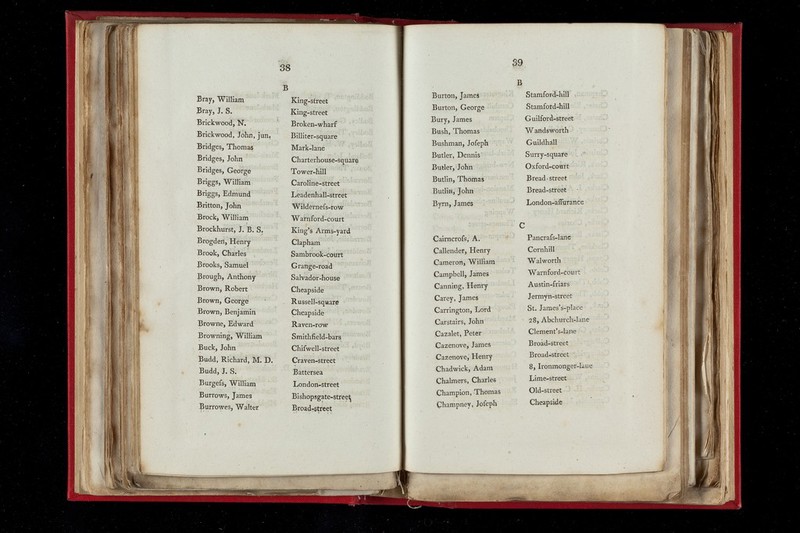 38
B
Bray, William King-street
Bray, J. S. King-street
Brickwood, N. Broken-wharf
Brickwood, John, jun. Billiter-square
Bridges, Thomas Mark-lane
Bridges, John Charterhouse-square
Bridges, George Tower-hill
Briggs, William Caroline-street
Briggs, Edmund Leadenhall-street
Britton, John Wildernefs-row
Brock, William Warnford-court
Brockhurst, J. B. S. King's Arms-yard
Brogden, Henry Clapham
Brook, Charles Sambrook-court
Brooks, Samuel Grange-road
Brough, Anthony Salvador-house
Brown, Robert Cheapside
Brown, George Russell-square
Brown, Benjamin Cheapside
Browne, Edward Raven-row
Browning, William Smithfield-bars
Buck, John Chifwell-street
Budd, Richard, M. D. Craven-street
Budd, J. S. Battersea
Burgefs, William London-street
Burrows, James Bishopsgate-street
Burrowes, Walter Broad-street
39
B
Burton, James Stamford-hill
Burton, George Stamford-hill
Bury, James Guilford-street
Bush, Thomas Wandsworth
Bushman, Jofeph Guildhall
Butler, Dennis Surry-square
Butler, John Oxford-court
Butlin, Thomas Bread-street
Butlin, John Bread-street
Byrn, James London-affurance
C
Cairncrofs, A. Pancrafs-lane
Callender, Henry Cornhill
Cameron, William Walworth
Campbell, James Warnford-court
Canning, Henry Austin-friars
Carey, James Jermyn-street
Carrington, Lord St. James's-place
Carstairs, John 28, Abchurch-lane
Cazalet, Peter Clement's-lane
Cazenove, James Broad-street
Cazenove, Henry Broad-street
Chadwick, Adam 8, Ironmonger-lane
Chalmers, Charles Lime-street
Champion, Thomas Old-street
Champney, Jofeph Cheapside